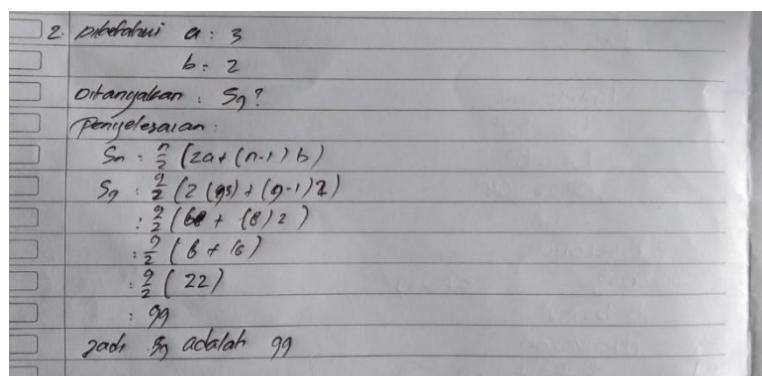 2. Diketahui a : 3
b : 2
Ditanyakan : S9?
Penyelesaian :
Sn : n/2 (2a + (n-1) b)
S9 : 9/2 (2 (3) + (9-1) 2)
: 9/2 (6 + (8) 2)
: 9/2 (6 + 16)
: 9/2 (22)
: 99
Jadi S9 adalah 99